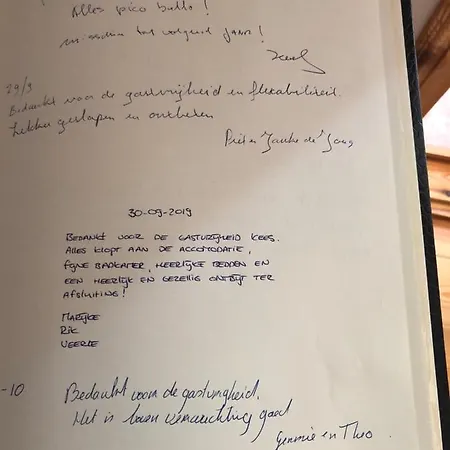 Alles pico bello!
en misschien tot volgend jaar!
29/9
Bedankt voor de gastvrijheid en flexibiliteit.
Lekker geslapen en ontbeten
Piet en Janke de Jong
30-09-2019
BEDANKT VOOR DE GASTVRIJHEID KEES.
ALLES KLOPT AAN DE ACCOMODATIE,
FIJNE BADKAMER, HEERLIJKE BEDDEN EN
EEN HEERLIJK EN GEZELLIG ONTBIJT TER
AFSLUITING!
MARIJKE
RIK
VEERLE
-10
Bedankt voor de gastvrijheid.
Het is boven verwachting goed
Gemmie en Theo.